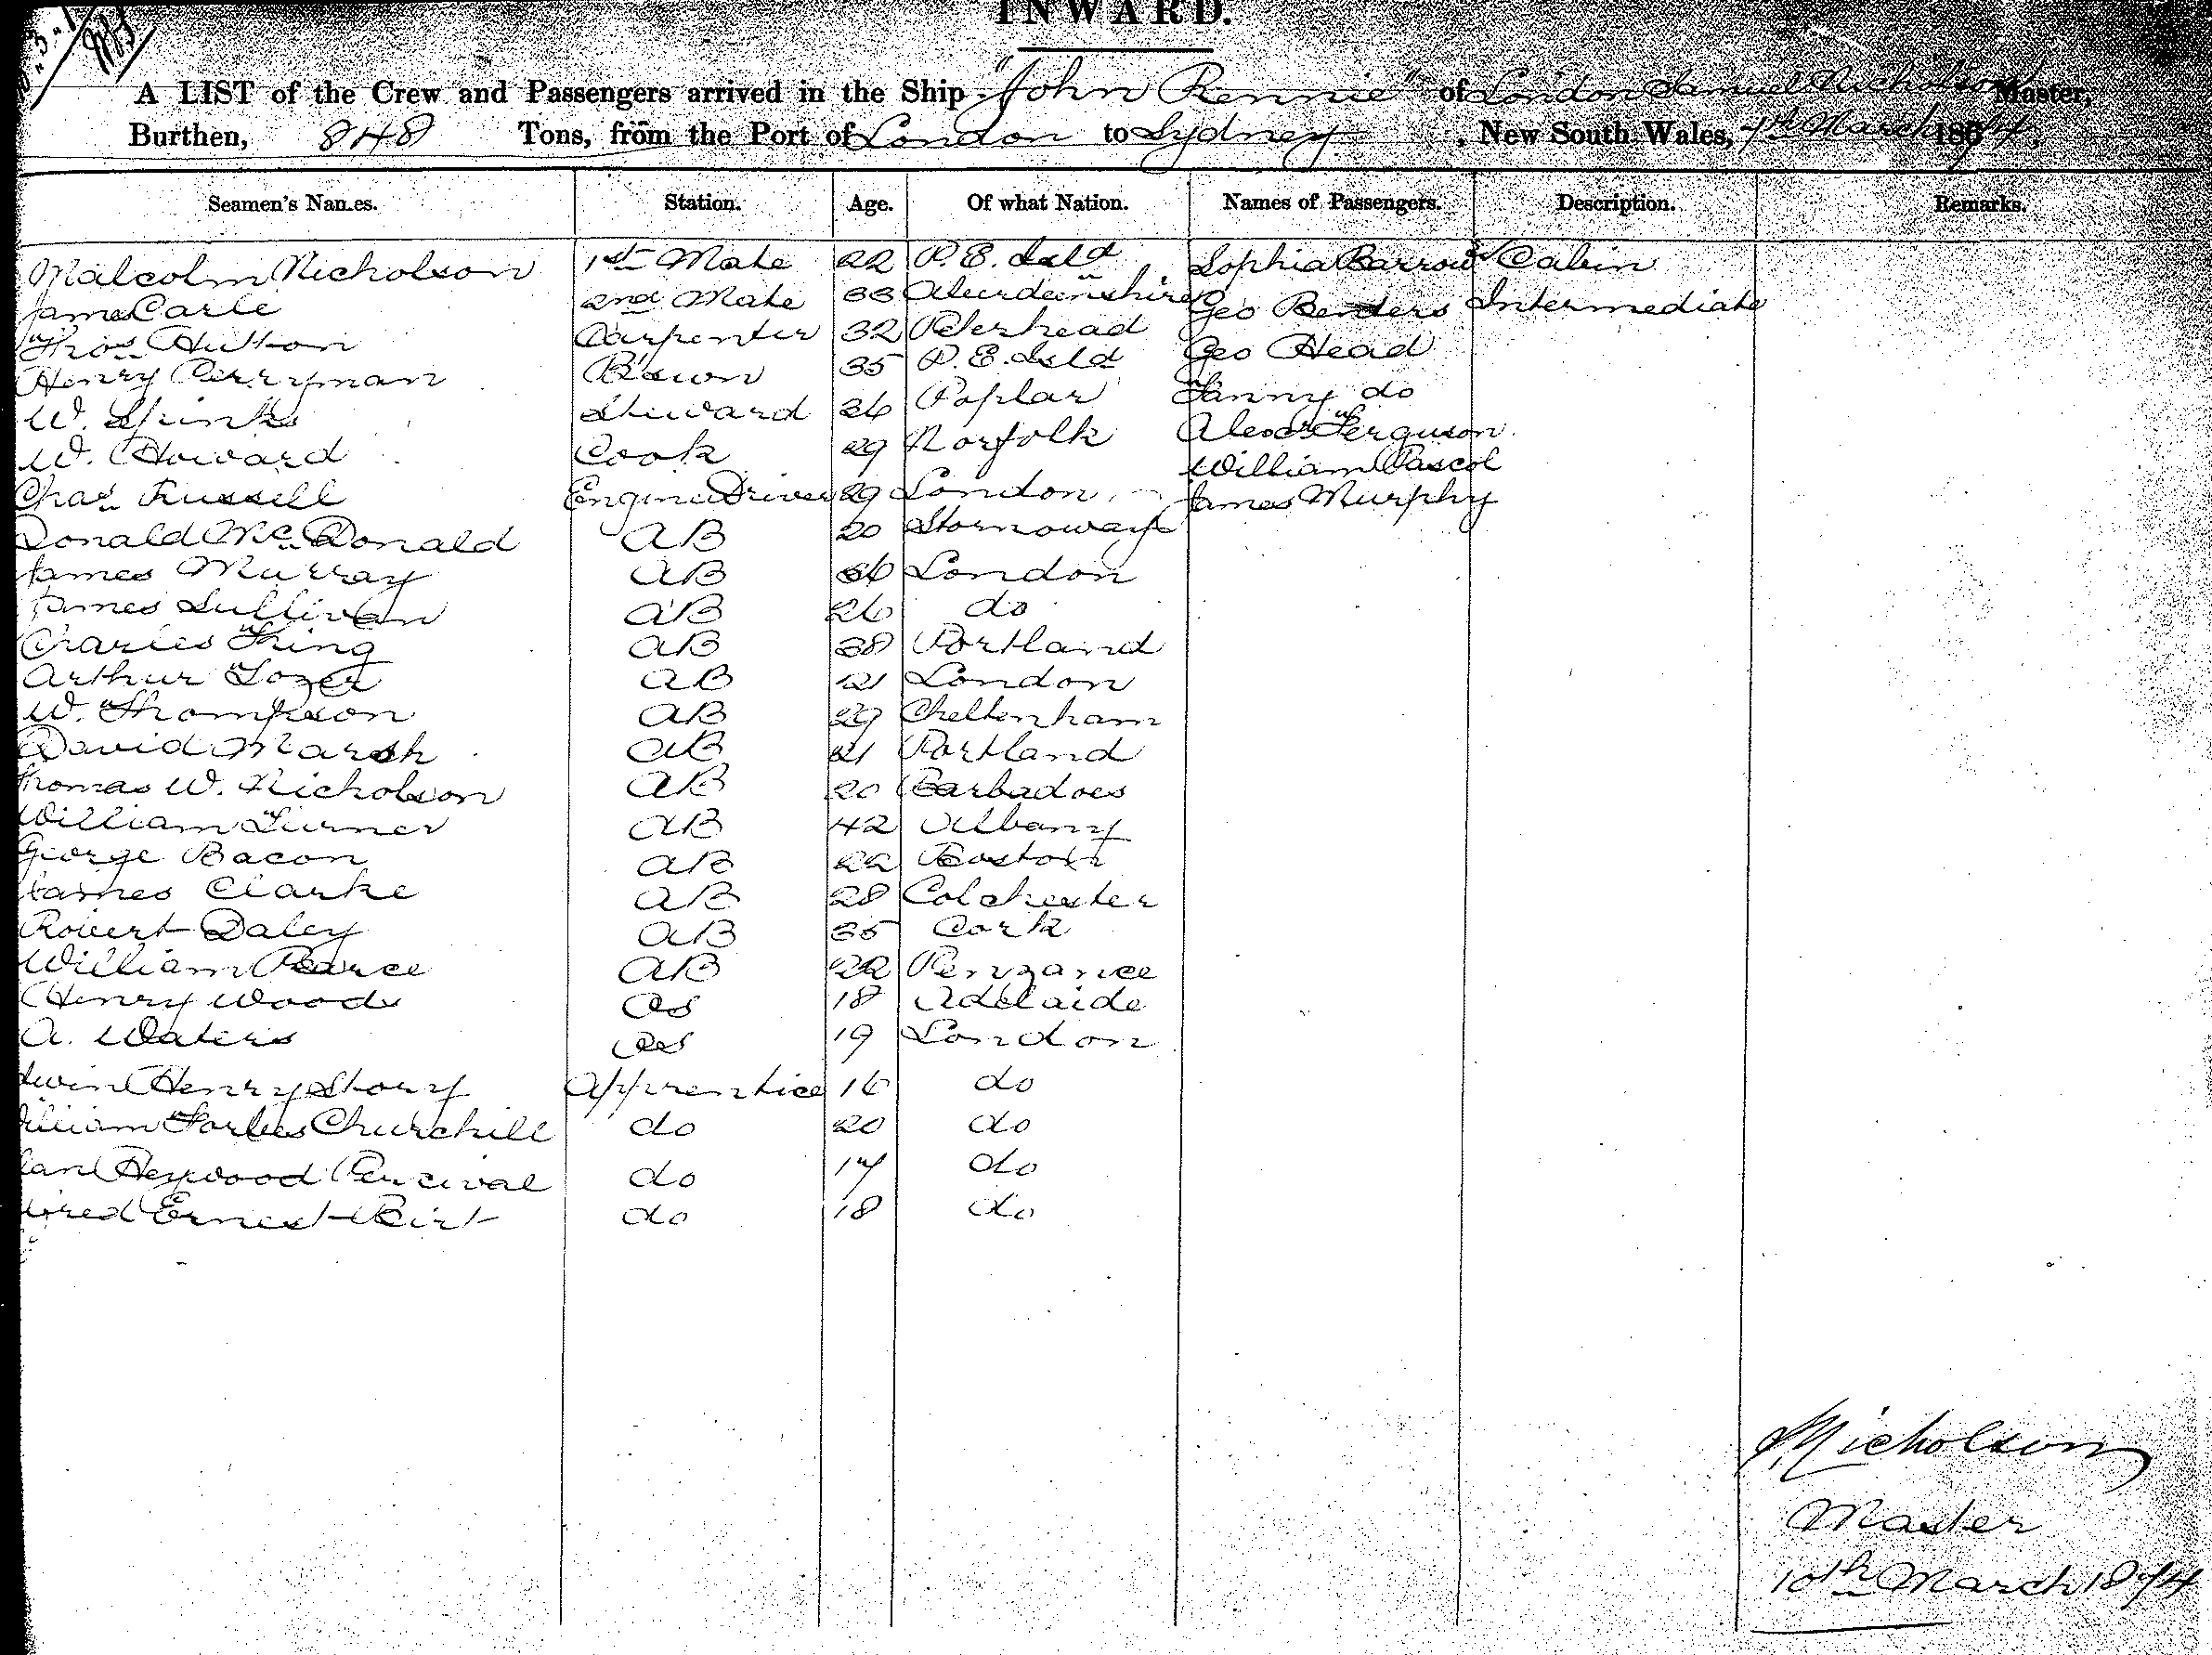 INWARD.
A LIST of the Crew and Passengers arrived in the Ship "John Rennie" of London Samuel Nicholson Master,
Burthen, 848 Tons, from the Port of London to Sydney, New South Wales, March 1874.
Seamen's Names. Station. Age. Of what Nation. Names of Passengers. Description. Remarks.
Malcolm Nicholson 1st Mate 22 P. E. Isld Sophia Barrow Cabin
James Carle 2nd Mate 33 Aberdeenshire Geo Benders Intermediate
Thos Hutton Carpenter 32 Peterhead Geo Head
Henry Perryman B'swn 35 P. E. Isld Fanny do
W. Spinks Steward 26 Poplar Alexr Ferguson
W. Howard Cook 29 Norfolk William Pascol
Chas Russell Engine Driver 29 London James Murphy
Donald McDonald AB 20 Stornoway
James Murray AB 36 London
James Sullivan AB 26 do
Charles King AB 38 Portland
Arthur Tozer AB 21 London
W. Thompson AB 29 Cheltenham
David Marsh AB 21 Portland
Thomas W. Nicholson AB 20 Barbadoes
William Turner AB 42 Albany
George Bacon AB 22 Boston
James Clarke AB 28 Colchester
Robert Daley AB 35 Cork
William Pearce AB 22 Penzance
Henry Woods OS 18 Adelaide
A. Waters OS 19 London
Henry Story Apprentice 16 do
William Forbes Churchill do 20 do
Heywood Percival do 17 do
Ernest Birt do 18 do
S. Nicholson
Master
10th March 1874